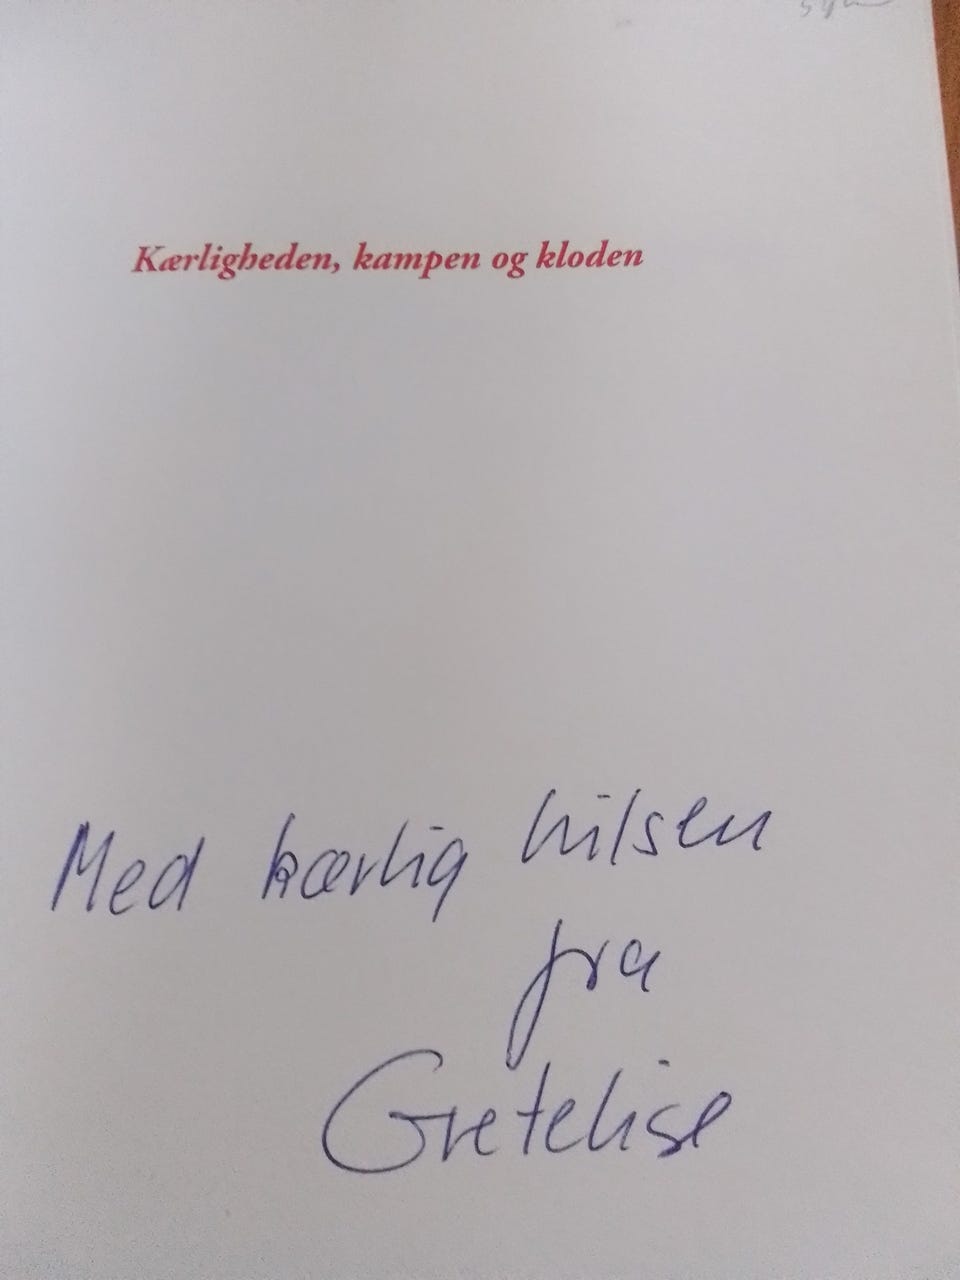 Kærligheden, kampen og kloden
Med kærlig hilsen
fra
Gretelise